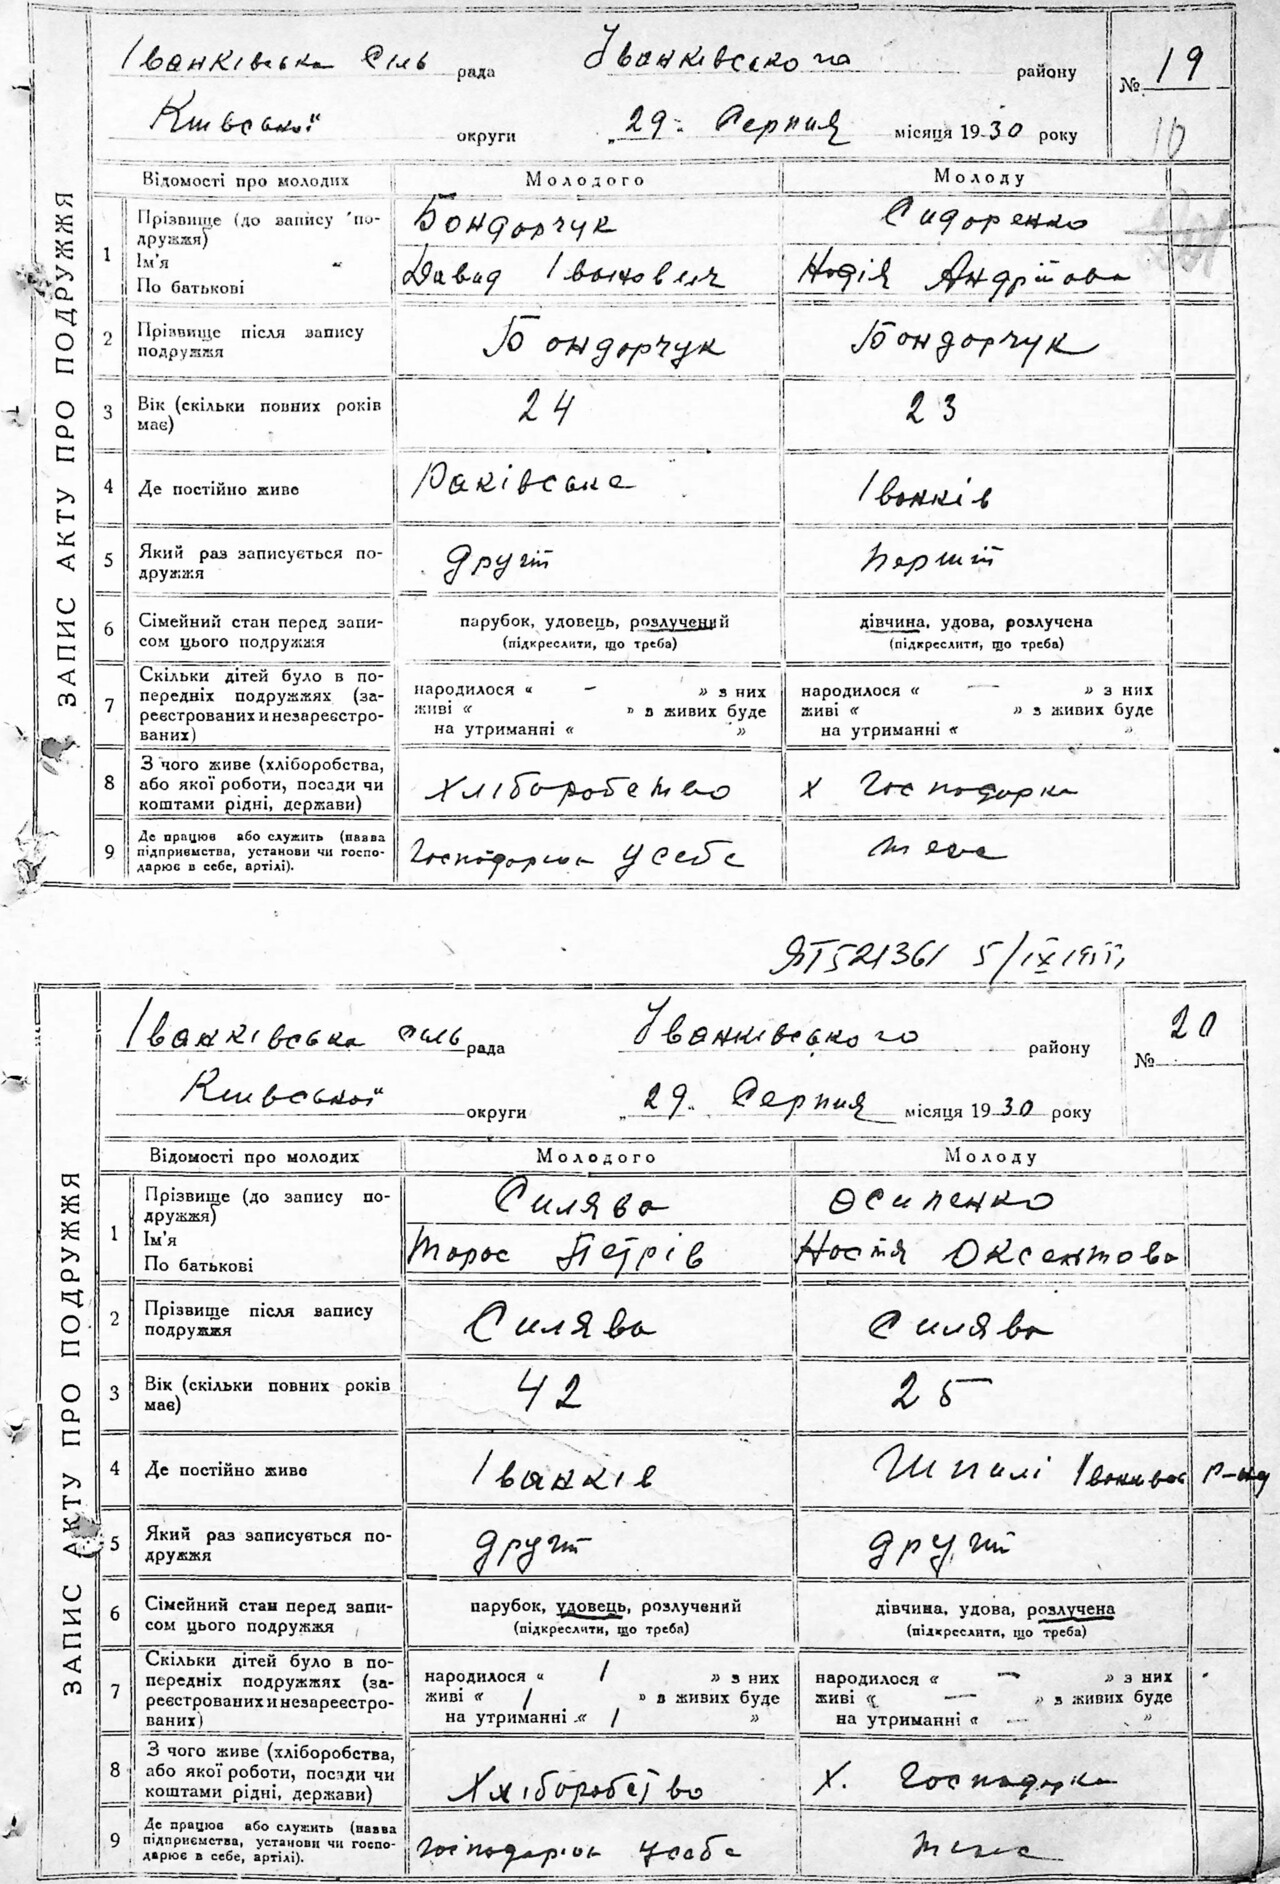 ЗАПИС АКТУ ПРО ПОДРУЖЖЯ
Іванківська сіль рада Іванківського району № 19
Київської округи „29" Серпня місяця 1930 року 10
Відомості про молодих Молодого Молоду
1 Прізвище (до запису по-
дружжя)
Ім'я
По батькові
Бондорчук Сидоренко
Давид Іванович Надія Андрійова
2 Прізвище після запису
подружжя
Бондорчук Бондорчук
3 Вік (скільки повних років
має)
24 23
4 Де постійно живе Раківське Іванків
5 Який раз записується по-
дружжя
другий Перший
6 Сімейний стан перед запи-
сом цього подружжя
парубок, удовець, розлучений дівчина, удова, розлучена
(підкреслити, що треба) (підкреслити, що треба)
7 Скільки дітей було в по-
передніх подружжях (за-
реєстрованих и незареєстро-
ваних)
народилося « – » з них народилося « — » з них
живі « » в живих буде живі « » з живих буде
на утриманні « » на утриманні « »
8 З чого живе (хліборобства,
або якої роботи, посади чи
коштами рідні, держави)
Хліборобство х Господарка
9 Де працює або служить (назва
підприємства, установи чи госпо-
дарює в себе, артілі).
Господарює у себе теж
ЯТ521361 5/IX
ЗАПИС АКТУ ПРО ПОДРУЖЖЯ
Іванківська сіль рада Іванківського району № 20
Київської округи „29" Серпня місяця 1930 року
Відомості про молодих Молодого Молоду
1 Прізвище (до запису по-
дружжя)
Ім'я
По батькові
Силява Осипенко
Тарас Петрів Настя Оксентова
2 Прізвище після запису
подружжя
Силява Силява
3 Вік (скільки повних років
має)
42 25
4 Де постійно живе Іванків Шпилі Іванківс р-ну
5 Який раз записується по-
дружжя
другий другий
6 Сімейний стан перед запи-
сом цього подружжя
парубок, удовець, розлучений дівчина, удова, розлучена
(підкреслити, що треба) (підкреслити, що треба)
7 Скільки дітей було в по-
передніх подружжях (за-
реєстрованих и незареєстро-
ваних)
народилося « 1 » з них народилося « — » з них
живі « 1 » в живих буде живі « — » з живих буде
на утриманні « 1 » на утриманні « — »
8 З чого живе (хліборобства,
або якої роботи, посади чи
коштами рідні, держави)
Хліборобство х. Господарка
9 Де працює або служить (назва
підприємства, установи чи госпо-
дарює в себе, артілі).
Господарює у себе теж